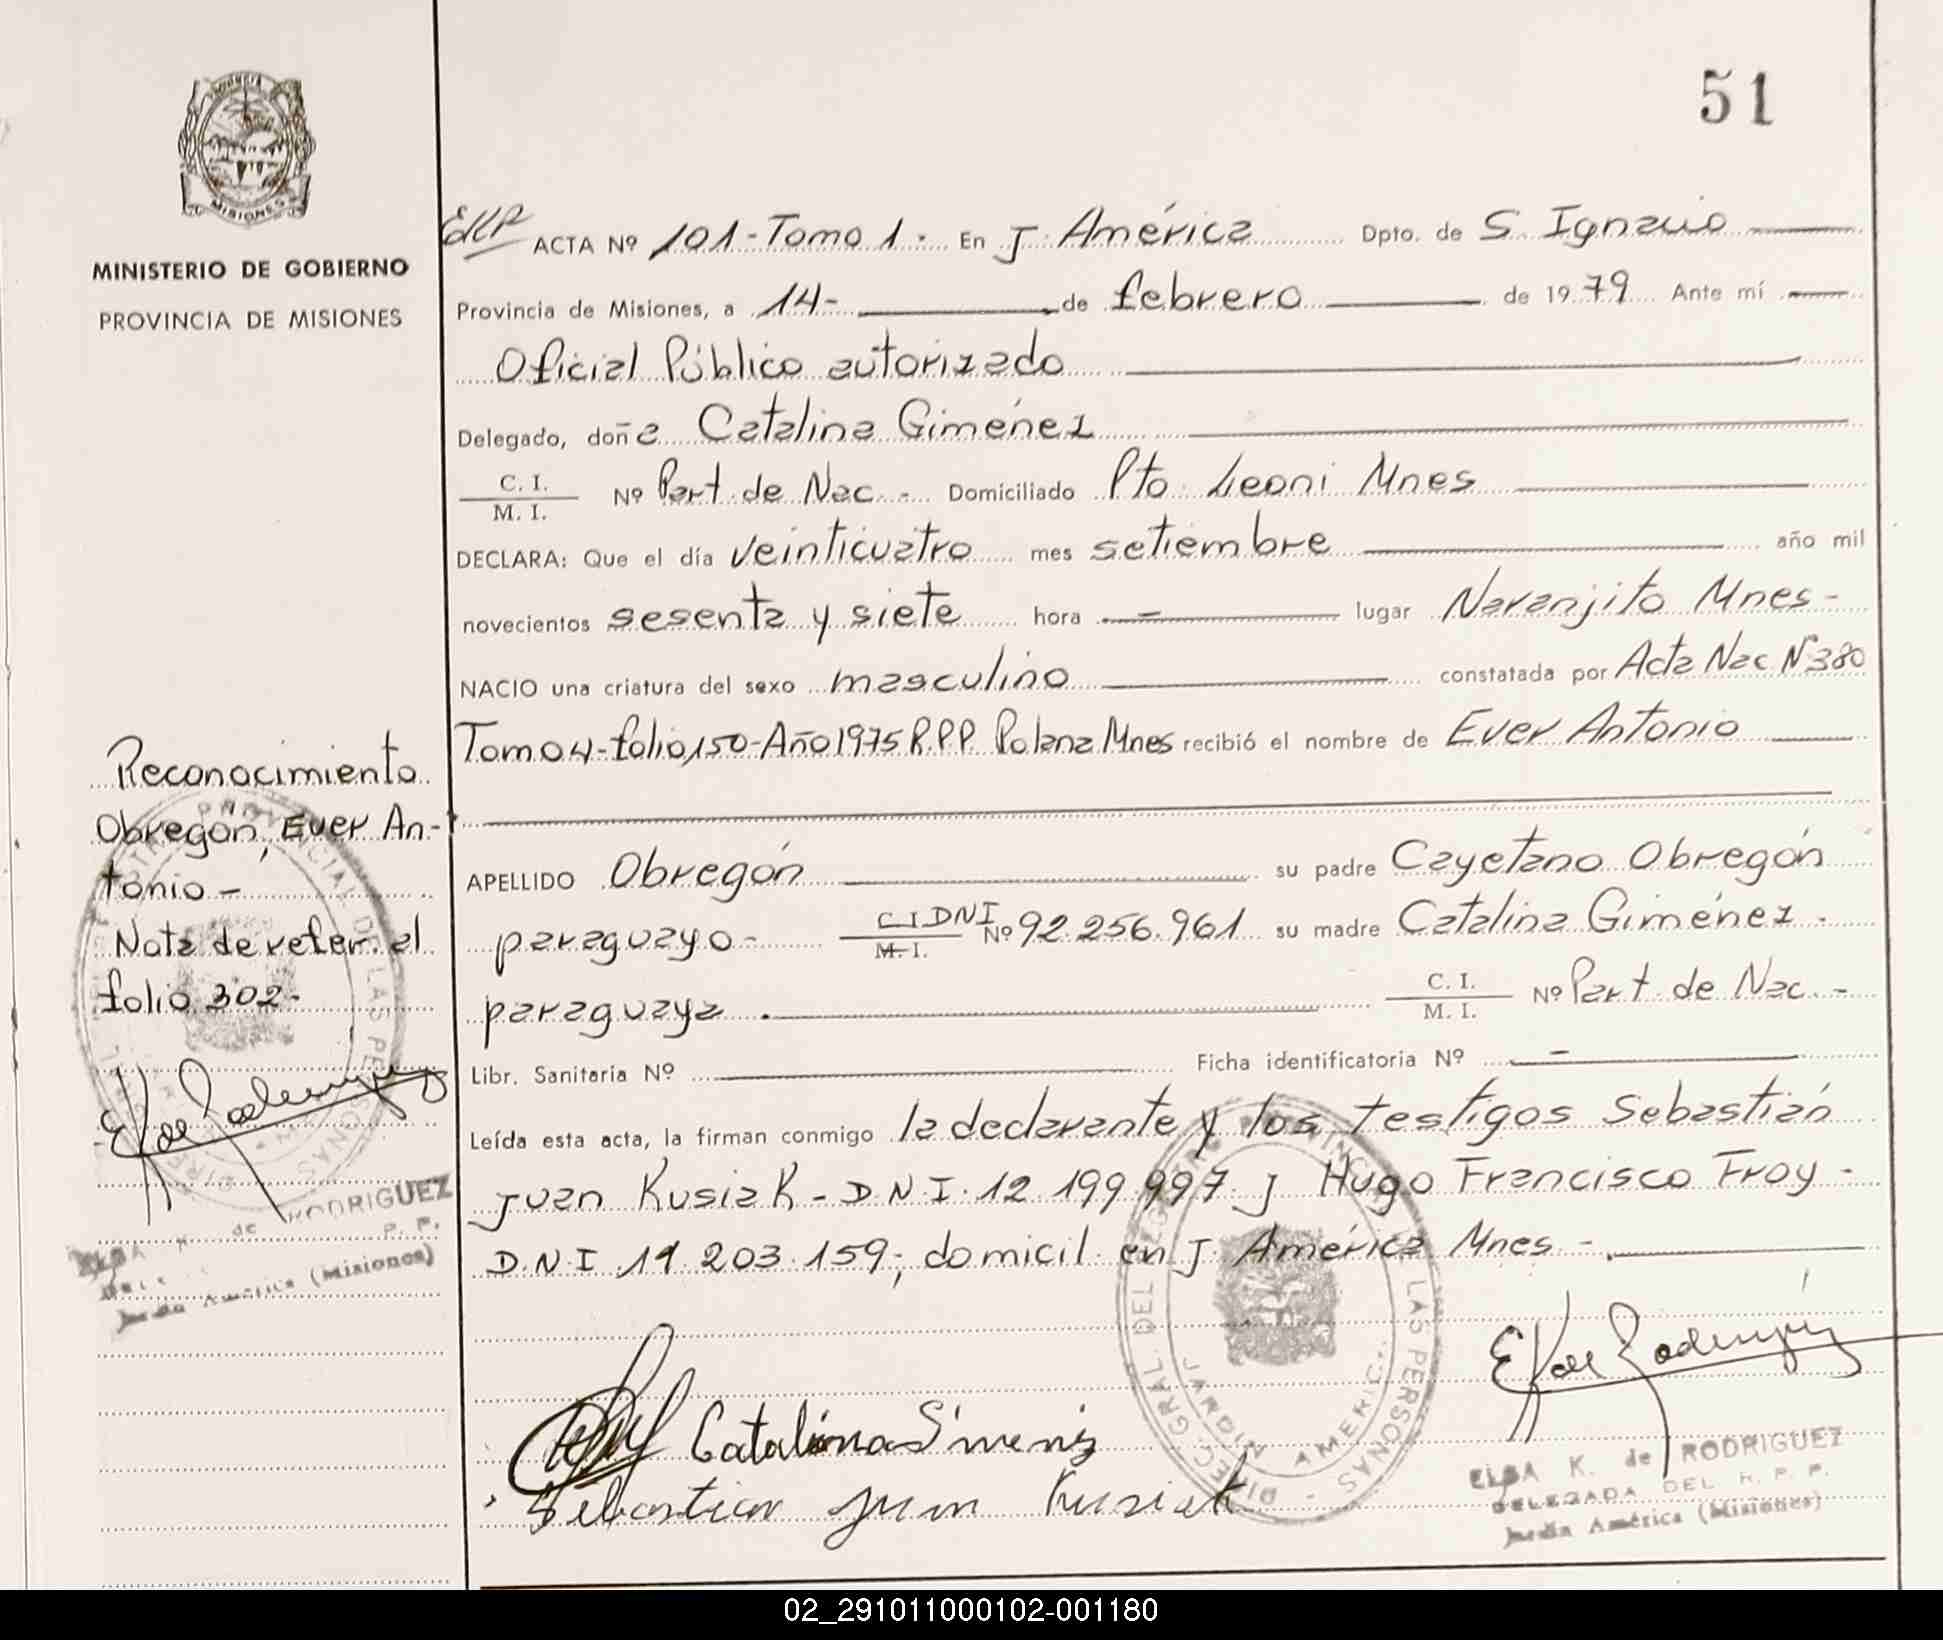 51
MISIONES
MINISTERIO DE GOBIERNO
PROVINCIA DE MISIONES
ACTA Nº 101-Tomo 1. En J. América Dpto. de S. Ignacio
Provincia de Misiones, a 14- de febrero de 1979 Ante mí
Oficial Público autorizado
Delegado, doña Catalina Giménez
C. I.
M. I.
Nº Part. de Nac. - Domiciliado Pto. Leoni Mnes
DECLARA: Que el día veinticuatro mes setiembre año mil
novecientos sesenta y siete hora - lugar Naranjito Mnes-
NACIO una criatura del sexo masculino constatada por Acta Nac. Nº380
Tomo 4-folio 150-Año 1975 R.P.P. Polana Mnes recibió el nombre de Ever Antonio
APELLIDO Obregón su padre Cayetano Obregón
paraguayo- C I DNI
M. I.
Nº 92.256.961 su madre Catalina Giménez-
paraguaya. C. I.
M. I.
Nº Part. de Nac. -
Libr. Sanitaria Nº Ficha identificatoria Nº -
Leída esta acta, la firman conmigo la declarante y los testigos Sebastián
Juan Kusiak- D.N.I. 12.199.997 y Hugo Francisco Froy-
D.N.I. 11.203.159; domicil. en J. América Mnes-.
Reconocimiento
Obregón, Ever An-
tonio-
Nota de refer. al
folio 302-
E K de Rodríguez
RODRIGUEZ
Jardín América (Misiones)
Catalina Simenez
Sebastian Juan Kusiak
DIREC. GRAL. DEL REGISTRO PROVINCIAL DE LAS PERSONAS
JARDIN AMERIC
E K de Rodríguez
ELBA K. de RODRIGUEZ
DELEGADA DEL R. P. P.
Jardín América (Misiones)
02_291011000102-001180